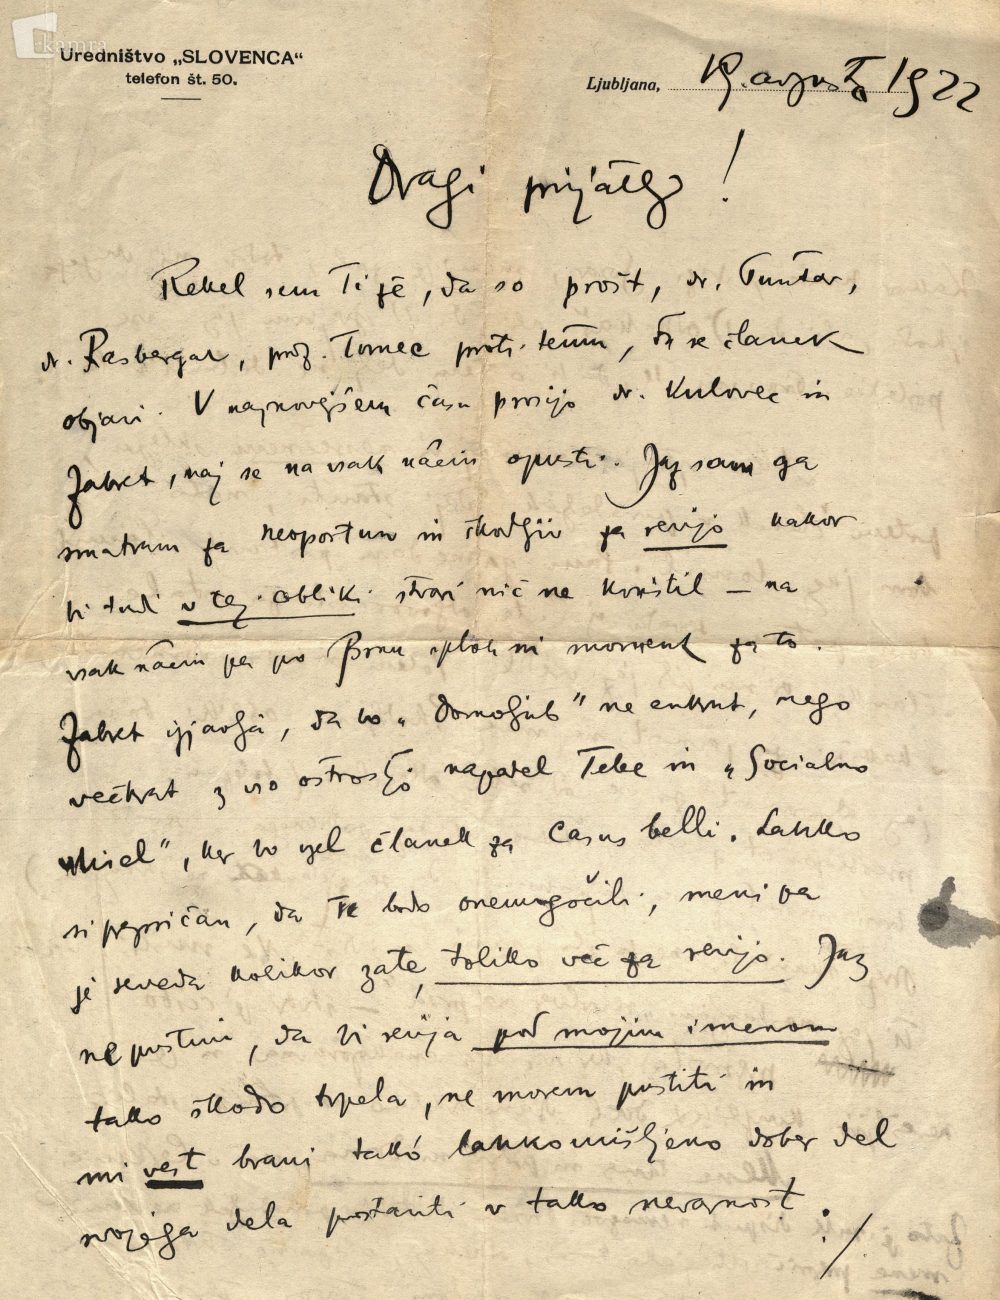 kamra
Uredništvo „SLOVENCA“
telefon št. 50.
Ljubljana, 19. avgusta 1922
Dragi prijatelj!
Rekel sem Ti že, da so prošt, dr.
dr. Rasberger, prof. Tomec proti temu, da se članek
objavi. V najnovejšem času prosijo dr. Kulovec in
Zabret, naj se na vsak način opusti. Jaz sam ga
smatram za neoportun in škodljiv za revijo kakor
bi tudi v tej obliki stvari nič ne koristil – na
vsak način pa po Brnu sploh ni moment za to.
Zabret izjavlja, da bo „Domoljub“ ne enkrat, nego
večkrat z vso ostrostjo napadel Tebe in „Socialno
Misel“, ker bo vzel članek za casus belli. Lahko
si prepričan, da Te bodo onemogočili, meni pa
je seveda kolikor zate, toliko več za revijo. Jaz
ne pustim, da bi revija pod mojim imenom
tako škodo trpela, ne morem pustiti in
mi vest brani tako lahkomišljeno dober del
svojega dela postaviti v tako nevarnost ./.